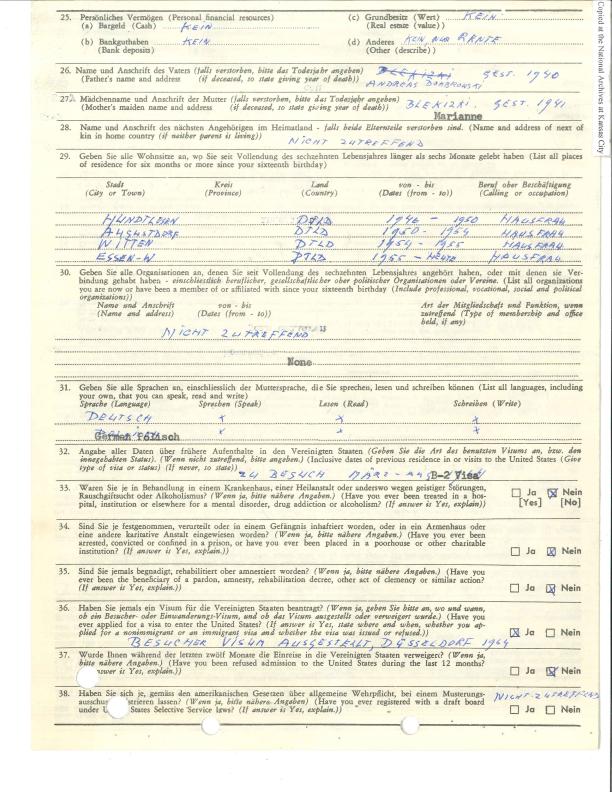 Copied at the National Archives at Kansas City
25. Persönliches Vermögen (Personal financial resources)
(a) Bargeld (Cash) KEIN
(c) Grundbesitz (Wert) KEIN
(Real estate (value))
(b) Bankguthaben KEIN
(Bank deposits)
(d) Anderes KEIN, NUR RENTE
(Other (describe))
26. Name und Anschrift des Vaters (falls verstorben, bitte das Todesjahr angeben) GEST. 1940
(Father's name and address (if deceased, so state giving year of death)) ANDREAS DOMBROWSKI
27. Mädchenname und Anschrift der Mutter (falls verstorben, bitte das Todesjahr angeben) BLEKIZKI. GEST. 1941
(Mother's maiden name and address (if deceased, so state giving year of death)) Marianne
28. Name und Anschrift des nächsten Angehörigen im Heimatland - falls beide Elternteile verstorben sind. (Name and address of next of
kin in home country (if neither parent is living))
NICHT ZUTREFFEND
29. Geben Sie alle Wohnsitze an, wo Sie seit Vollendung des sechzehnten Lebensjahres länger als sechs Monate gelebt haben (List all places
of residence for six months or more since your sixteenth birthday)
Stadt Kreis Land von - bis Beruf oder Beschäftigung
(City or Town) (Province) (Country) (Dates (from - to)) (Calling or occupation)
HUNDTLOSEN DTLD 1946 - 1950 HAUSFRAU
AUGUSTDORF DTLD 1950 - 1954 HAUSFRAU
WITTEN DTLD 1954 - 1955 HAUSFRAU
ESSEN-W DTLD 1955 - HEUTE HAUSFRAU
30. Geben Sie alle Organisationen an, denen Sie seit Vollendung des sechzehnten Lebensjahres angehört haben, oder mit denen sie Ver-
bindung gehabt haben - einschliesslich beruflicher, gesellschaftlicher oder politischer Organisationen oder Vereine. (List all organizations
you are now or have been a member of or affiliated with since your sixteenth birthday (Include professional, vocational, social and political
organizations))
Name und Anschrift von - bis Art der Mitgliedschaft und Funktion, wenn
(Name and address) (Dates (from - to)) zutreffend (Type of membership and office
held, if any)
NICHT ZUTREFFEND
None
31. Geben Sie alle Sprachen an, einschliesslich der Muttersprache, die Sie sprechen, lesen und schreiben können (List all languages, including
your own, that you can speak, read and write)
Sprache (Language) Sprechen (Speak) Lesen (Read) Schreiben (Write)
DEUTSCH x x x
German Polisch x x x
32. Angabe aller Daten über frühere Aufenthalte in den Vereinigten Staaten (Geben Sie die Art des benutzten Visums an, bzw. den
innegehabten Status). (Wenn nicht zutreffend, bitte angeben.) (Inclusive dates of previous residence in or visits to the United States (Give
type of visa or status) (If never, so state))
ZU BESUCH MÄRZ - B-2 Visa
33. Waren Sie je in Behandlung in einem Krankenhaus, einer Heilanstalt oder anderswo wegen geistiger Störungen,
Rauschgiftsucht oder Alkoholismus? (Wenn ja, bitte nähere Angaben.) (Have you ever been treated in a hos-
pital, institution or elsewhere for a mental disorder, drug addiction or alcoholism? (If answer is Yes, explain))
Ja Nein
[Yes] [No]
34. Sind Sie je festgenommen, verurteilt oder in einem Gefängnis inhaftiert worden, oder in ein Armenhaus oder
eine andere karitative Anstalt eingewiesen worden? (Wenn ja, bitte nähere Angaben.) (Have you ever been
arrested, convicted or confined in a prison, or have you ever been placed in a poorhouse or other charitable
institution? (If answer is Yes, explain.))
Ja Nein
35. Sind Sie jemals begnadigt, rehabilitiert ober amnestiert worden? (Wenn ja, bitte nähere Angaben.) (Have you
ever been the beneficiary of a pardon, amnesty, rehabilitation decree, other act of clemency or similar action?
(If answer is Yes, explain.))
Ja Nein
36. Haben Sie jemals ein Visum für die Vereinigten Staaten beantragt? (Wenn ja, geben Sie bitte an, wo und wann,
ob ein Besucher- oder Einwanderungs-Visum, und ob das Visum ausgestellt oder verweigert wurde.) (Have you
ever applied for a visa to enter the United States? (If answer is Yes, state where and when, whether you ap-
plied for a nonimmigrant or an immigrant visa and whether the visa was issued or refused.))
Ja Nein
BESUCHER VISUM AUSGESTELLT, DÜSSELDORF 1964
37. Wurde Ihnen während der letzten zwölf Monate die Einreise in die Vereinigten Staaten verweigert? (Wenn ja,
bitte nähere Angaben.) (Have you been refused admission to the United States during the last 12 months?
answer is Yes, explain.))
Ja Nein
38. Haben Sie sich je, gemäss den amerikanischen Gesetzen über allgemeine Wehrpflicht, bei einem Musterungs-
ausschuss registrieren lassen? (Wenn ja, bitte nähere Angaben) (Have you ever registered with a draft board
under United States Selective Service laws? (If answer is Yes, explain.))
NICHT ZUTREFFEND
Ja Nein